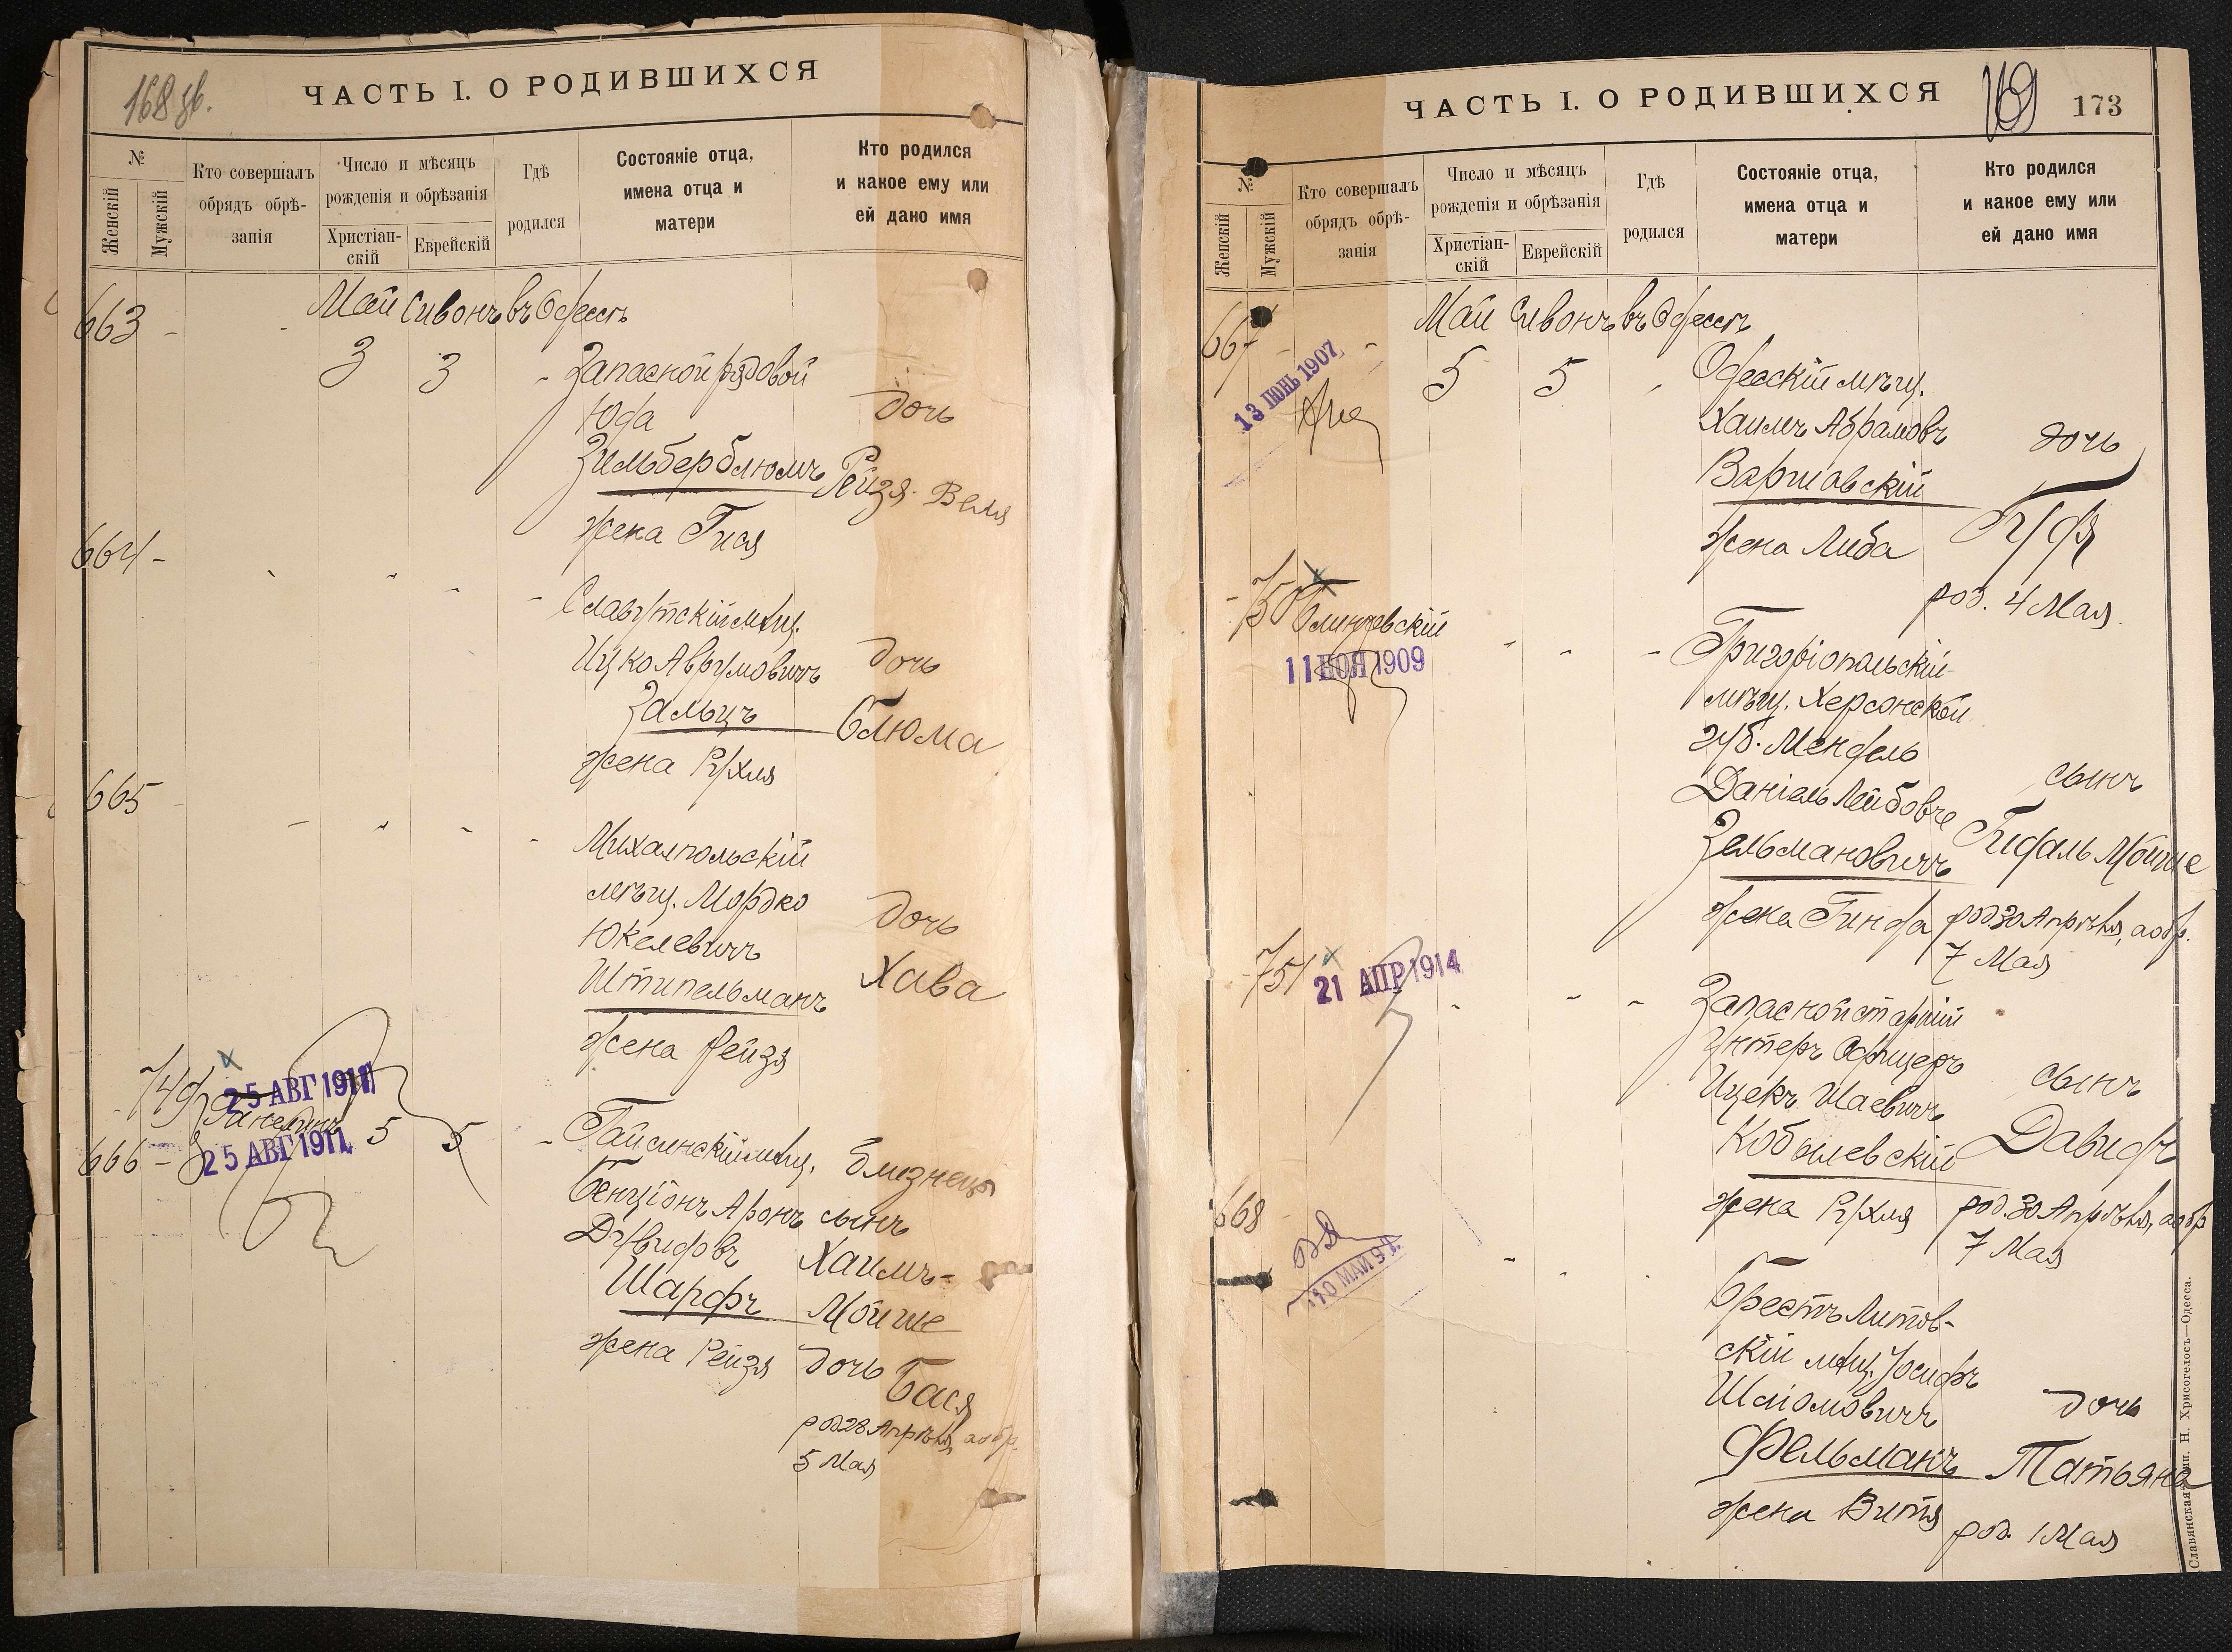 168 об.
ЧАСТЬ I. О РОДИВШИХСЯ
№
Женскій
Мужскій
Кто совершалъ
обрядъ обрѣ-
занія
Число и мѣсяцъ
рожденія и обрѣзанія
Христіан-
скій
Еврейскій
Гдѣ
родился
Состояніе отца,
имена отца и
матери
Кто родился
и какое ему или
ей дано имя
Май Сивонъ въ Одессѣ
663
3 3 Запасной рядовой
Юда
дочь
Зильберблюмъ
Рейзя-Веля
жена Гися
664
Славутскій мѣщ.
Ицко Аврумовичъ
дочь
Зальцъ
Блюма
жена Рухля
665
Михалпольскій
мѣщ. Мордко
дочь
Юкелевичъ
Штипельманъ
Хава
жена Рейзя
749
25 АВГ 1911
666
25 АВГ 1911
5 5 Гайсинскій мѣщ.
близнецы
Бенціонъ Аронъ
сынъ
Дувидовъ
Хаимъ-
Шарфъ
Мойше
жена Рейзя
дочь
Бася
род 28 Апрѣля, а обр.
5 Мая
ЧАСТЬ I. О РОДИВШИХСЯ
169
173
№
Женскій
Мужскій
Кто совершалъ
обрядъ обрѣ-
занія
Число и мѣсяцъ
рожденія и обрѣзанія
Христіан-
скій
Еврейскій
Гдѣ
родился
Состояніе отца,
имена отца и
матери
Кто родился
и какое ему или
ей дано имя
Май Сивонъ въ Одессѣ
667
13 ІЮНЬ 1907
5 5 Одесскій мѣщ.
Хаимъ Абрамовъ
дочь
Варшавскій
жена Либа
род. 4 Мая
750
11 НОЯ 1909
Григоріопольскій
мѣщ. Херсонской
губ. Мендель
Даніель Лейбовъ
сынъ
Зельмановичъ
Гидаль Мойше
жена Гинда
род 30 Апрѣля, а обр.
7 Мая
751
21 АПР 1914
Запасной старшій
Унтеръ Офицеръ
Ицекъ Шаевичъ
сынъ
Кобылевскій
Давидъ
жена Рухля
род. 30 Апрѣля, а обр
7 Мая
668
Брестъ Литов-
скій мѣщ. Іосифъ
Шліомовичъ
дочь
Фельманъ
Татьяна
жена Витя
род. 1 Мая
Славянская тип. Н. Хрисогелосъ—Одесса.